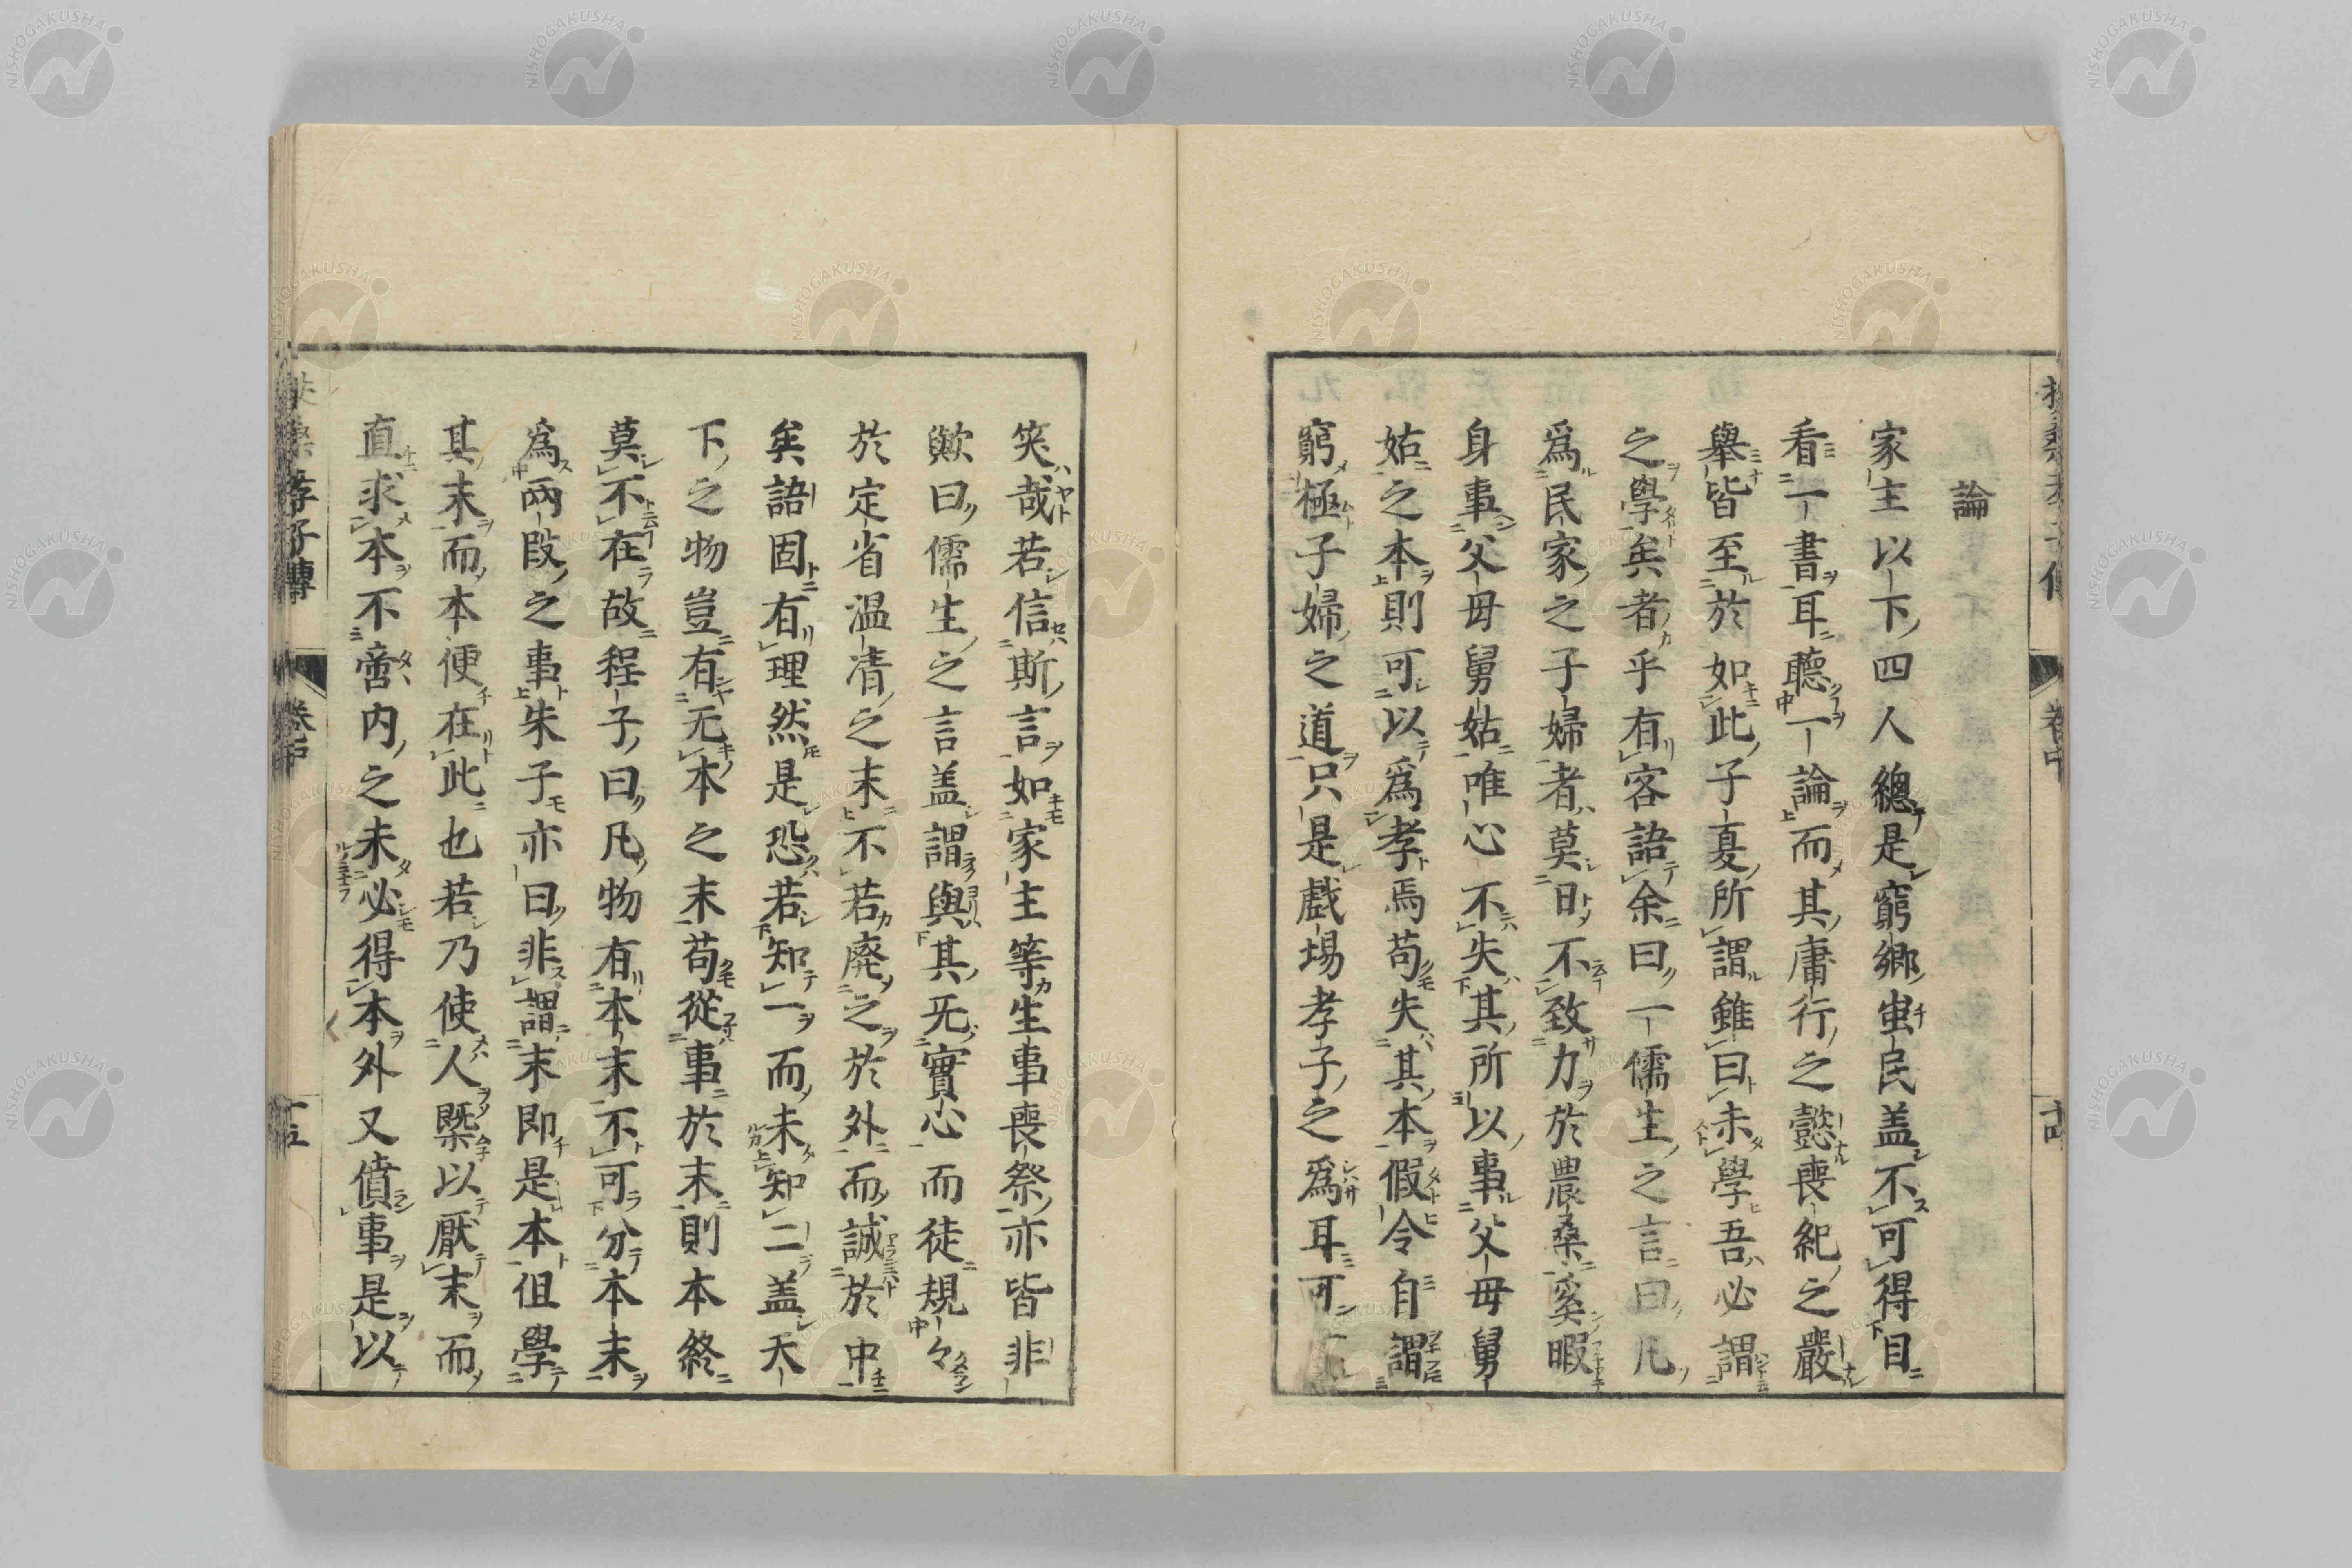 論
家主以下四人總是窮鄉虫民盖不可得目
看一書耳聽一論而其庸行之懿喪紀之嚴
舉皆至於如此子夏所謂雖曰未學吾必謂
之學矣者乎有客語余曰一儒生之言曰凡
爲民家之子婦者莫曰不致力於農桑奚暇
身事父母舅姑唯心不失其所以事父母舅
姑之本則可以爲孝焉苟失其本假令自謂
窮極子婦之道只是戲場孝子之爲耳可
笑哉若信斯言如家主等生事喪祭亦皆非
歟曰儒生之言盖謂與其无實心而徒規々
於定省温凊之末不若廃之於外而誠於中
矣語固有理然是恐若知一而未知二盖天
下之物豈有无本之末苟從事於末則本終
莫不在故程子曰凡物有本末不可分本末
爲兩段之事朱子亦曰非謂末即是本但學
其末而本便在此也若乃使人槩以厭末而
直求本不啻内之未必得本外又僨事是以
孝子傳 卷中 十五
卷中 十四
NISHOGAKUSHA